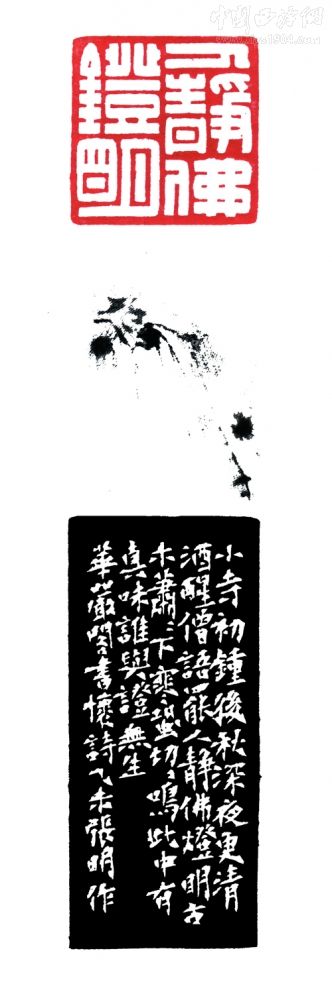 中国西泠网
人靜佛
鐙明
小寺初鍾後秋深夜更清
酒醒僧語罷人靜佛燈明古
木蕭〻下寒蛩切〻鳴此中有
真味誰與證無生
華嚴閣書懷詩乙未張明作